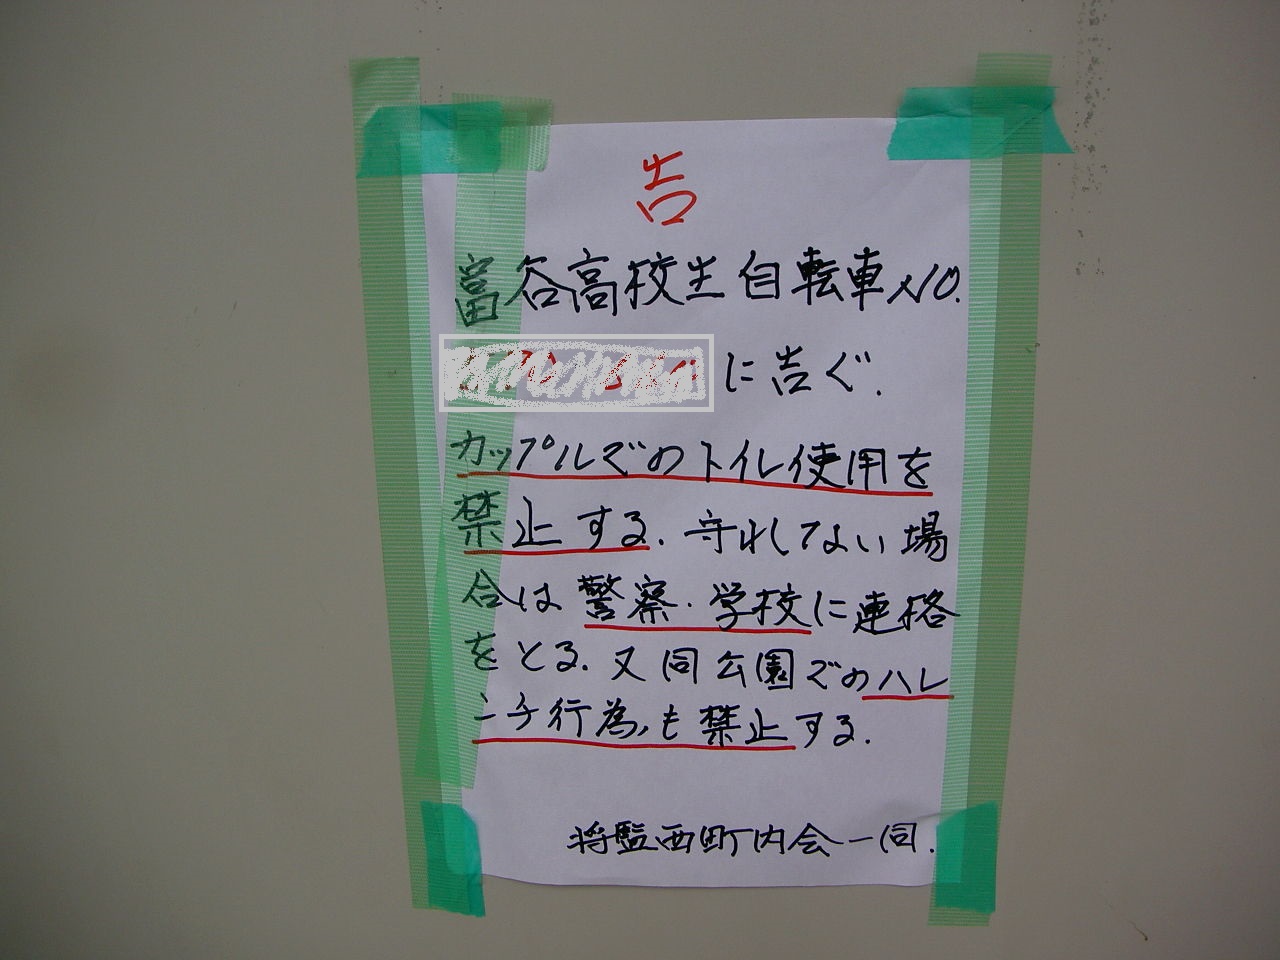 告
富谷高校生自転車NO.
に告ぐ.
カップルでのトイレ使用を
禁止する.守れしてない場
合は警察・学校に連絡
をとる.又同公園でのハレ
ンチ行為も禁止する.
将監西町内会一同.